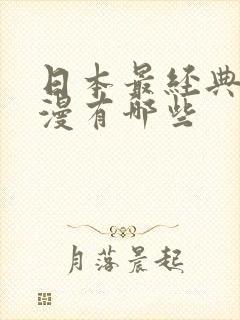 日本最经典
漫有那些
月落晨起